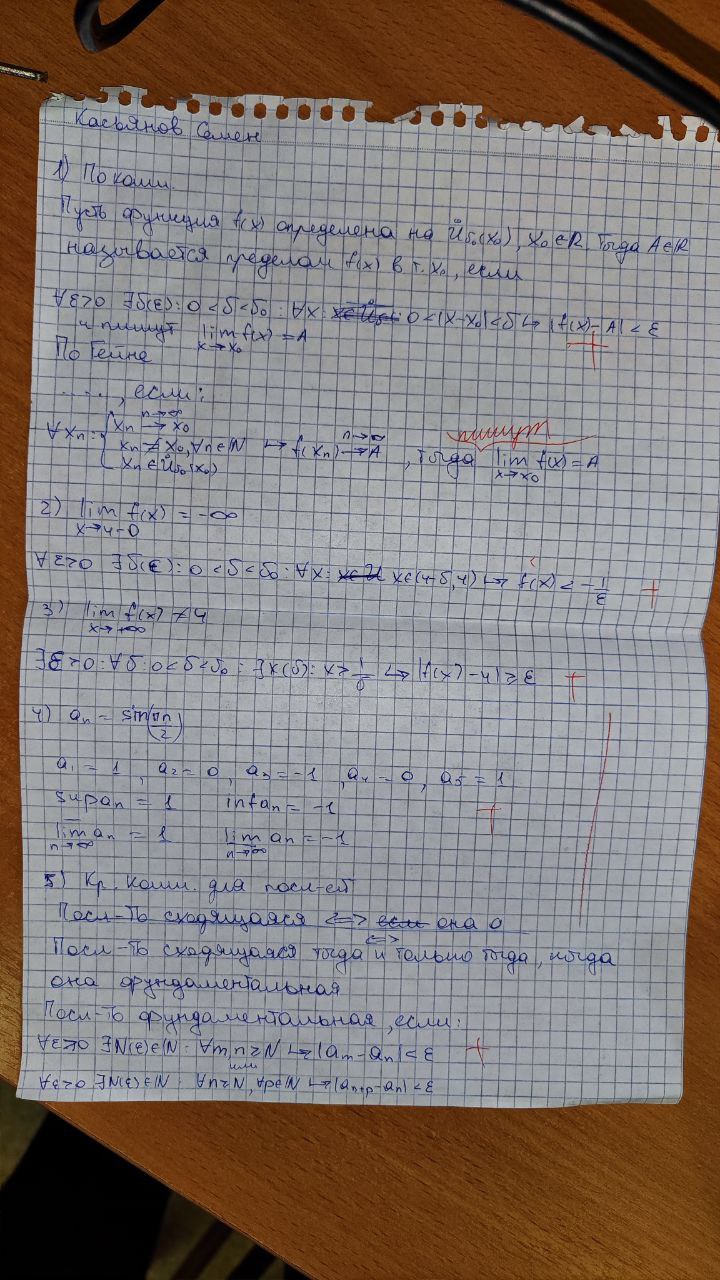 Касьянов Семен
1) По Коши.
Пусть функция f(x) определена на Ů_δ₀(x₀), x₀∈ℝ. Тогда A∈ℝ
называется пределом f(x) в т. x₀, если
∀ε>0 ∃δ(ε): 0<δ<δ₀ : ∀x: 0<|x-x₀|<δ ↪ |f(x)-A|<ε
+
и пишут lim f(x) = A
x→x₀
По Гейне
....., если:
пишут
∀xₙ: { xₙ →(n→∞) x₀
xₙ ≠ x₀, ∀n∈ℕ ↪ f(xₙ) →(n→∞) A , тогда lim f(x) = A
xₙ ∈ Ů_δ₀(x₀) x→x₀
2) lim f(x) = -∞
x→4-0
∀ε>0 ∃δ(ε): 0<δ<δ₀ : ∀x: x∈(4-δ,4) ↪ f(x) < -1/ε +
3) lim f(x) ≠ 4
x→+∞
∃ε>0 : ∀δ: 0<δ<δ₀ : ∃x(δ): x>1/δ ↪ |f(x)-4| ≥ ε +
4) aₙ = sin(πn/2)
a₁ = 1, a₂ = 0, a₃ = -1, a₄ = 0, a₅ = 1
sup aₙ = 1 inf aₙ = -1 +
l̅i̅m̅ aₙ = 1 l̲i̲m̲ aₙ = -1
n→∞ n→∞
5) Кр. Коши. для посл-ей
Посл-ть сходящаяся <=> если она о
<=>
Посл-ть сходящаяся тогда и только тогда, когда
она фундаментальная
Посл-ть фундаментальная, если:
∀ε>0 ∃N(ε)∈ℕ: ∀m,n≥N ↪ |aₘ-aₙ|<ε +
или
∀ε>0 ∃N(ε)∈ℕ: ∀n≥N, ∀p∈ℕ ↪ |aₙ₊ₚ-aₙ|<ε